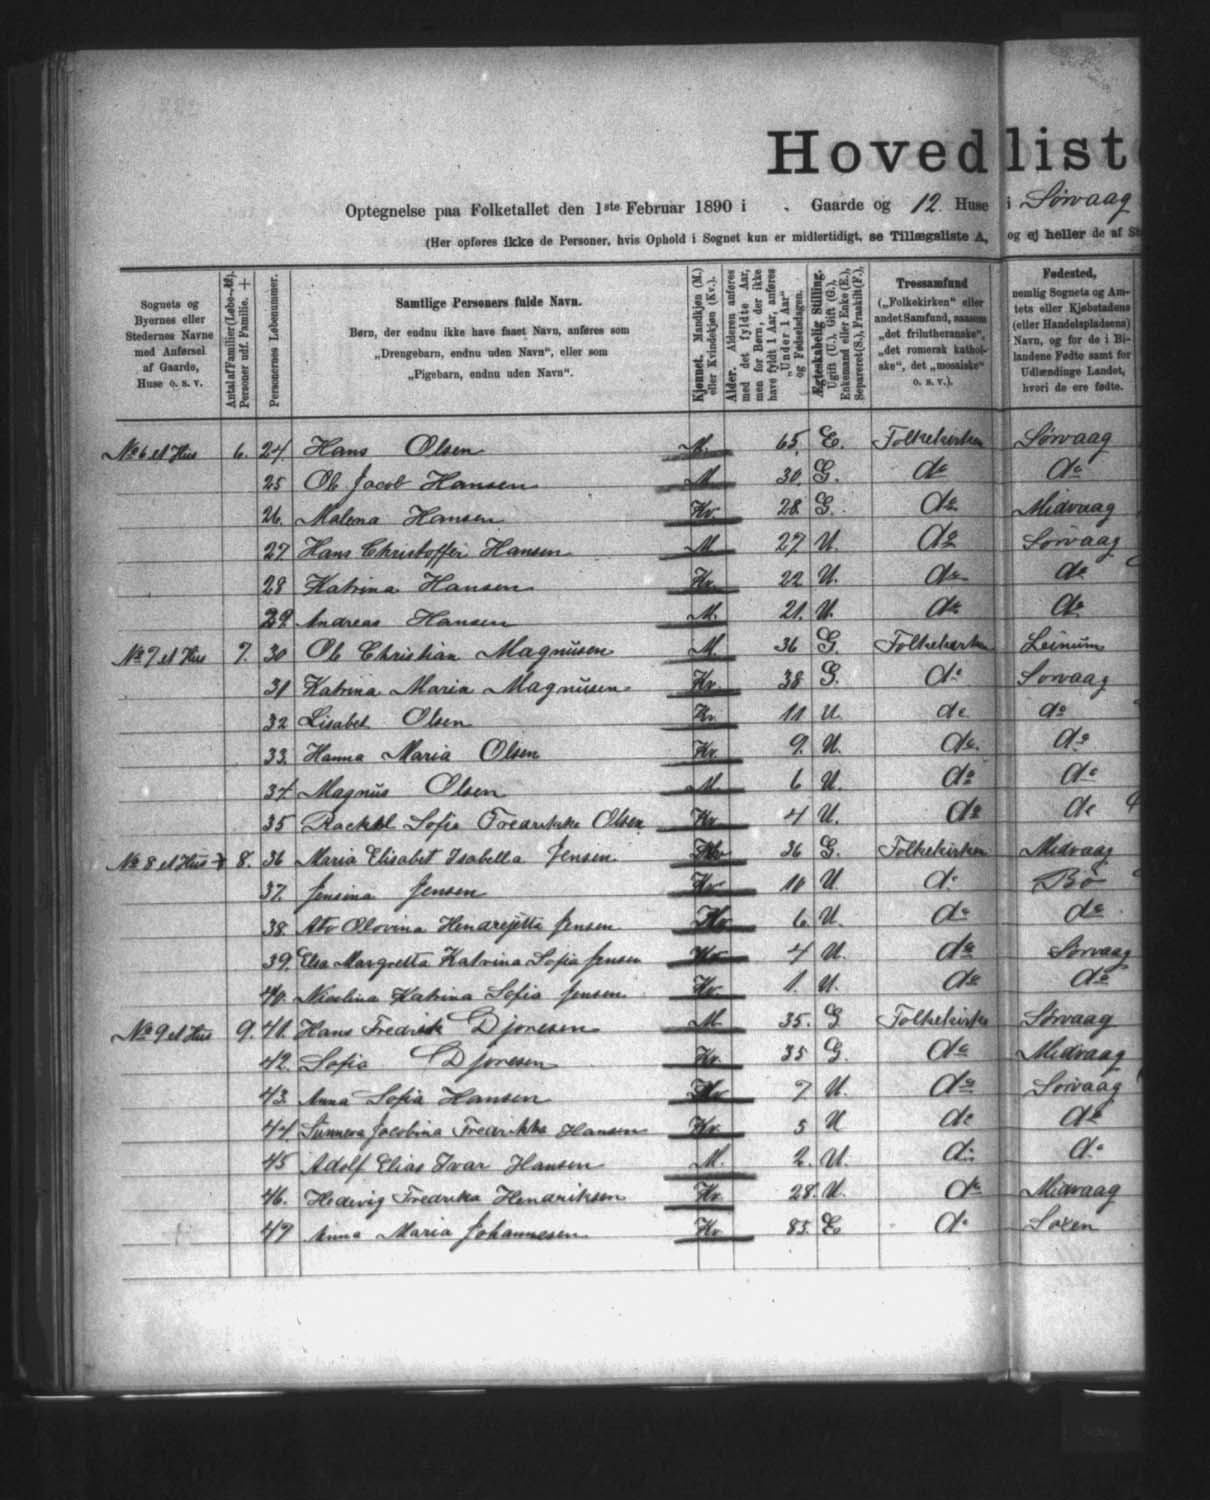 Hovedliste
Optegnelse paa Folketallet den 1ste Februar 1890 i . Gaarde og 12 Huse i Sørvaag
(Her opføres ikke de Personer, hvis Ophold i Sognet kun er midlertidigt, se Tillægsliste A, og ej heller de af
Sognets og Byernes eller Stedernes Navne med Anførsel af Gaarde, Huse o. s. v.
Antal af Familier (Løbe-№). Personer udf. Familie. +
Personernes Løbenummer.
Samtlige Personers fulde Navn.
Børn, der endnu ikke have faaet Navn, anføres som
„Drengebarn, endnu uden Navn", eller som
„Pigebarn, endnu uden Navn".
Kjønnet. Mandkjøn (M.) eller Kvindekjøn (Kv.).
Alder. Alderen anføres med det fyldte Aar, men for Børn, der ikke have fyldt 1 Aar, anføres „Under 1 Aar" og Fødselsdagen.
Ægteskabelig Stilling. Ugift (U.), Gift (G.), Enkemand eller Enke (E.), Separeret (S.), Fraskilt (F.).
Trossamfund („Folkekirken" eller andet Samfund, saasom „det frilutheranske", „det romersk katholske", det „mosaiske" o. s. v.).
Fødested, nemlig Sognets og Amtets eller Kjøbstadens (eller Handelspladsens) Navn, og for de i Bilandene Fødte samt for Udlændinge Landet, hvori de ere fødte.
No 6 et Hus 6. 24. Hans Olsen M. 65. E. Folkekirken Sørvaag
25 Ole Jacob Hansen M 30. G. do do
26. Malena Hansen Kv. 28 G. do Midvaag
27 Hans Christoffer Hansen M 27 U. do Sørvaag
28 Katrina Hansen Kv. 22 U. do do
29. Andreas Hansen M. 21. U. do do
No 7 et Hus 7. 30 Ole Christian Magnüsen M. 36 G. Folkekirken Leinum
31 Katrina Maria Magnüsen Kv. 38 G. do Sørvaag
32 Lisabet Olsen Kv. 11 U. do do
33. Hanna Maria Olsen Kv. 9. U. do do
34 Magnüs Olsen M. 6 U. do do
35 Rachel Sofia Fredrikke Olsen Kv. 4 U. do do
No 8 et Hus + 8. 36 Maria Elisabet Isabella Jensen Kv 36 G. Folkekirken Midvaag
37. Jensina Jensen Kv. 10 U. do Bö
38. Olovina Jensen Kv 6. U. do do
39. Elsa Margretta Katrina Sofia Jensen Kv 4 U. do Sørvaag
40. Nicolina Katrina Sofia Jensen Kv. 1. U. do do
No 9 et Hus 9. 41. Hans Fredrik Djonesen M. 35. G Folkekirke Sørvaag
42. Sofia Djonesen Kv. 35 G. do Midvaag
43. Anna Sofia Hansen Kv. 7 U. do Sørvaag
44 Sunneva Jacobina Fredrikka Hansen Kv. 5 U do do
45 Adolf Elias Ivar Hansen M. 2. U. do do
46. Hedevig Fredrika Hendriksen Kv. 28. U. do Midvaag
47 Anna Maria Johannesen Kv. 85. E do